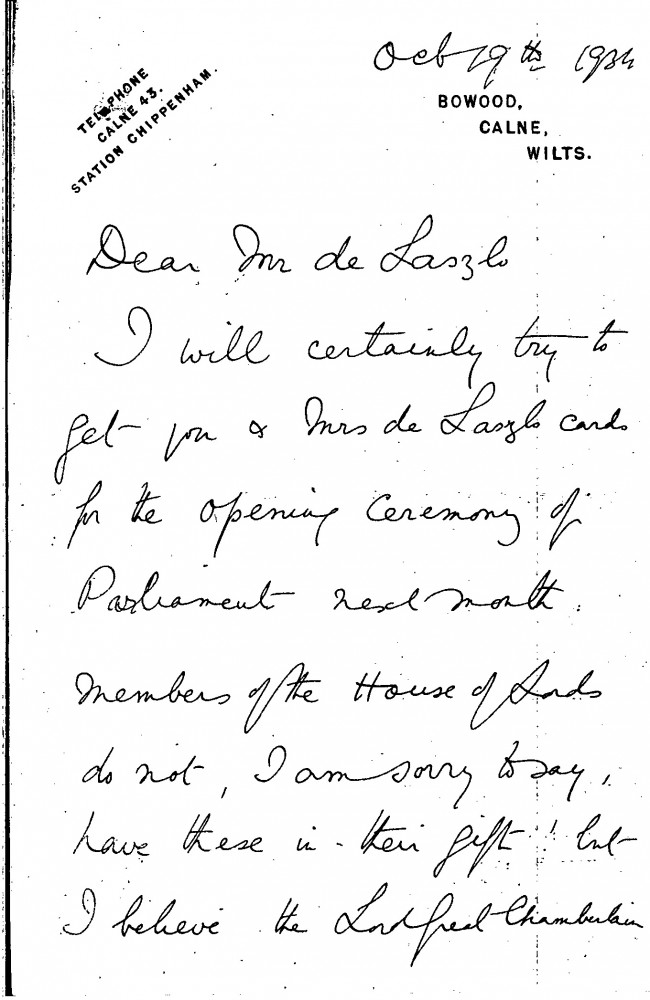 TELEPHONE
CALNE 43.
STATION CHIPPENHAM.
Oct 19th 1934
BOWOOD,
CALNE,
WILTS.
Dear Mr de Laszlo
I will certainly try to
get you & Mrs de Laszlo cards
for the opening ceremony of
Parliament next month.
Members of the House of Lords
do not, I am sorry to say,
have these in their gift! but
I believe the Lord Great Chamberlain